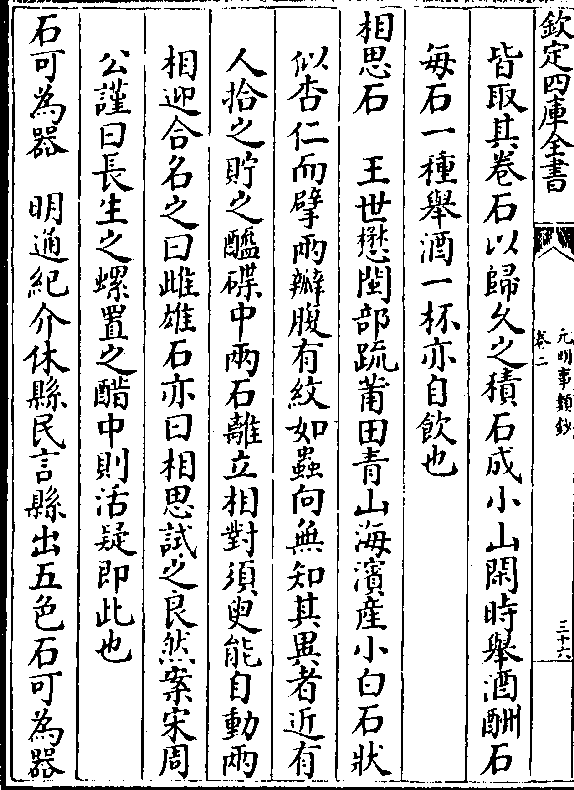 欽定四庫全書
元明事類鈔
卷二
三十六
皆取其卷石以歸久之積石成小山閑時舉酒酬石
每石一種舉酒一杯亦自飲也
相思石　王世懋閩部疏莆田青山海濱産小白石狀
似杏仁而擘兩瓣腹有紋如蟲向無知其異者近有
人拾之貯之醯碟中兩石離立相對須臾能自動兩
相迎合名之曰雌雄石亦曰相思試之良然案宋周
公謹曰長生之螺置之醋中則活疑即此也
石可為器　明通紀介休縣民言縣出五色石可為器